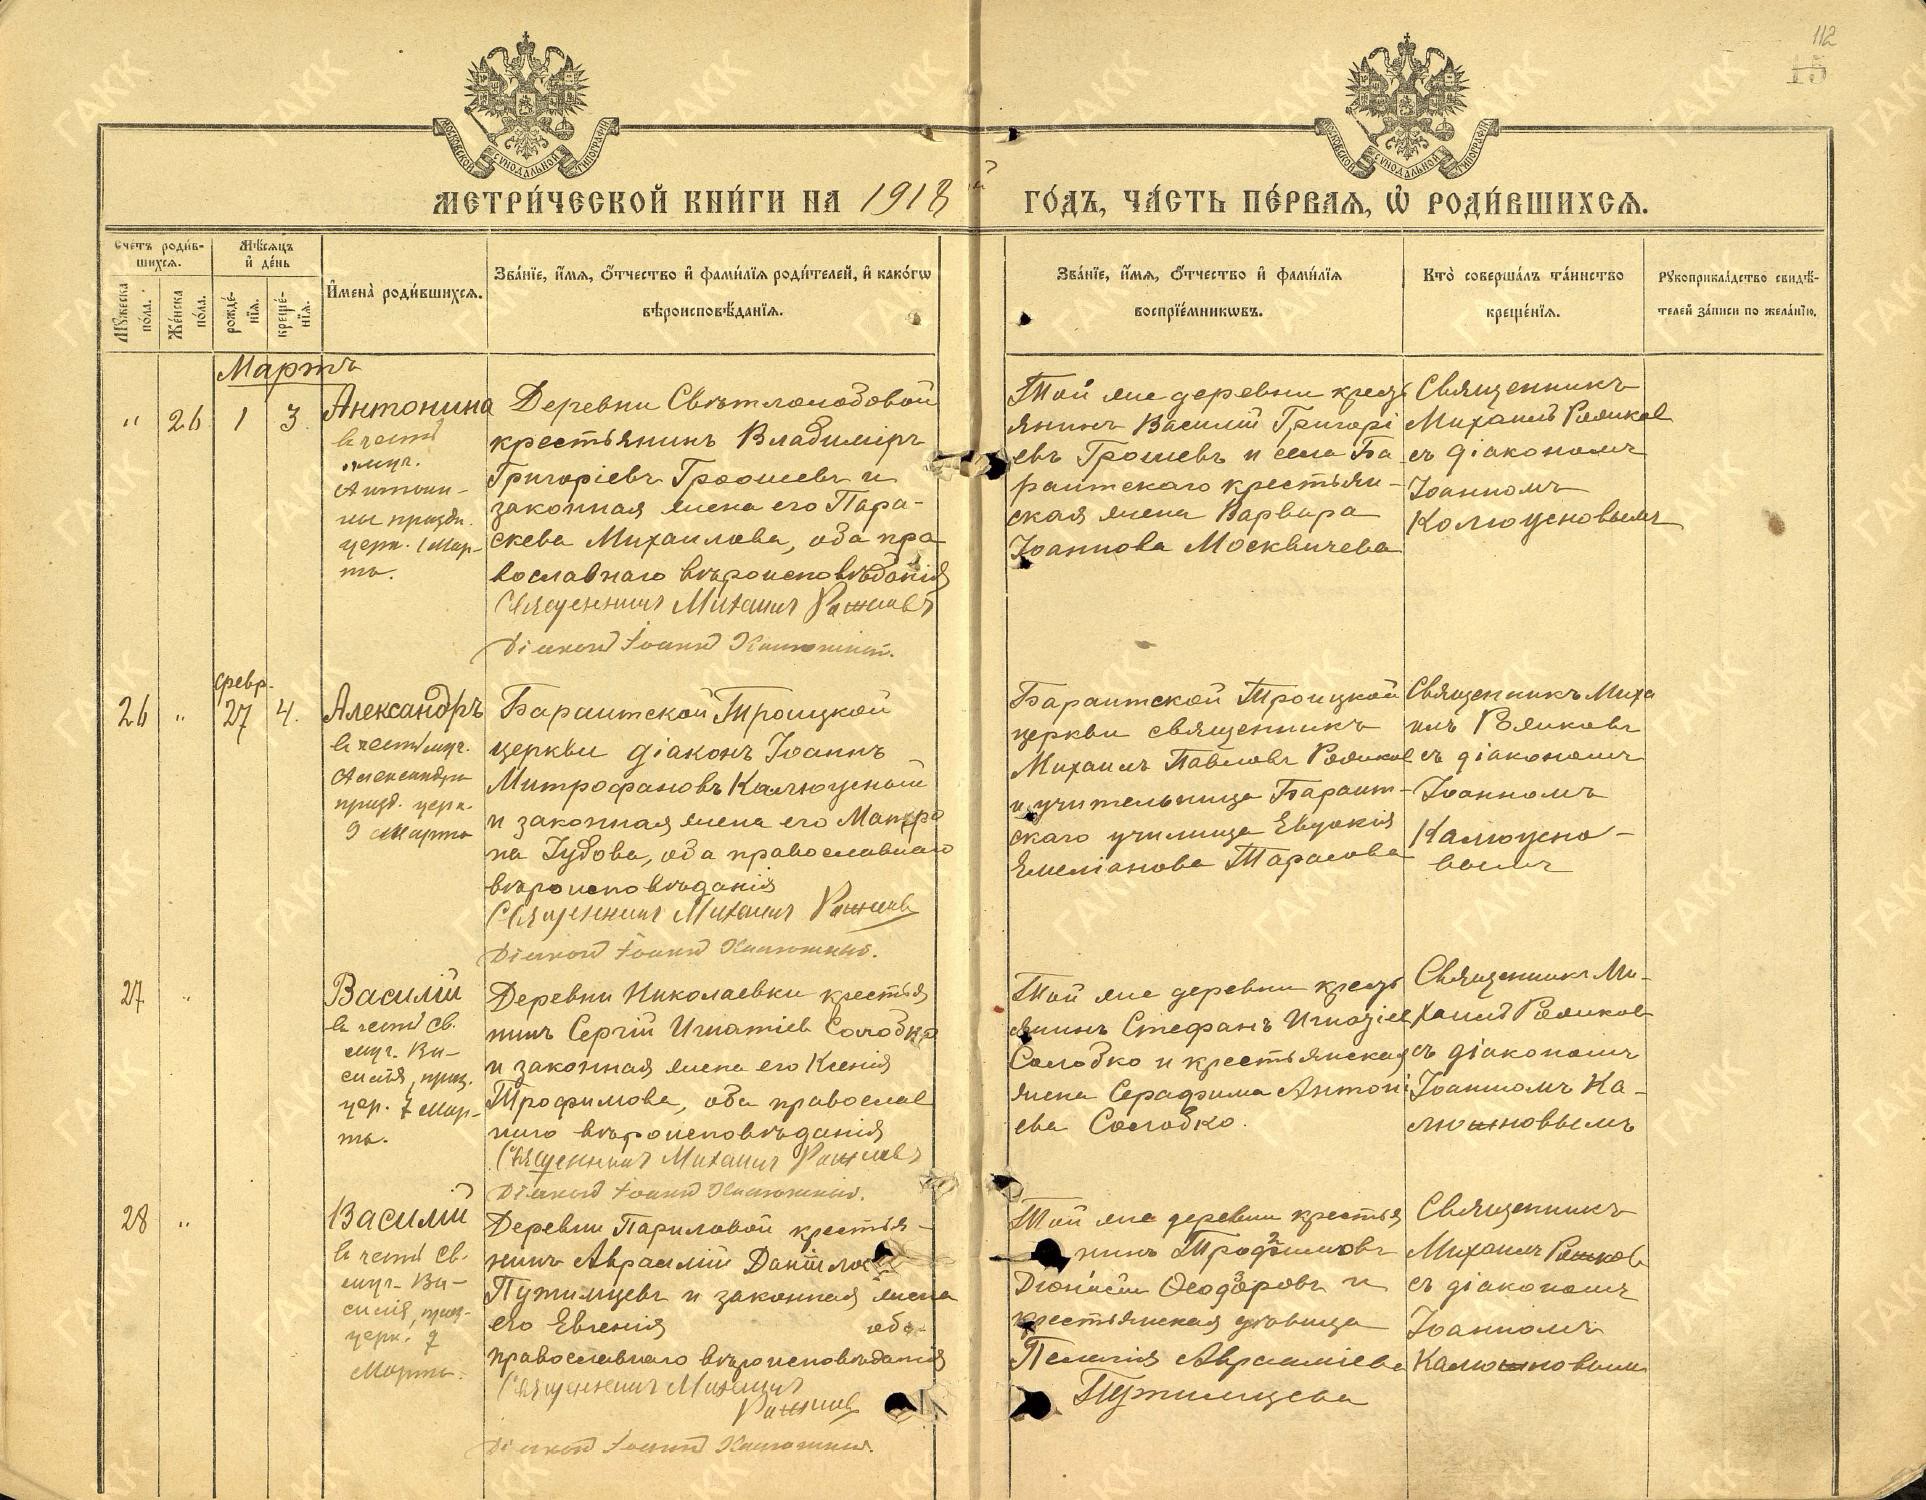 112
15
МОСКОВСКОЙ СѴНОДАЛЬНОЙ ТИПОГРАФІИ
МОСКОВСКОЙ СѴНОДАЛЬНОЙ ТИПОГРАФІИ
МЕТРИ́ЧЕСКОЙ КНИ́ГИ НА 1918 ГО́ДЪ, ЧА́СТЬ ПЕ́РВАЯ, Ѡ҆ РОДИ́ВШИХСЯ.
Сче́тъ роди́в-
шихся.
Мѣ́сяцъ
и҆ де́нь
Мꙋ́жеска
по́ла.
Же́нска
по́ла.
рожде́-
нїя.
креще́-
нїя.
И҆мена̀ роди́вшихся.
Зва́нїе, и҆́мя, ѻ҆́тчество и҆ фами́лїя роди́телей, и҆ како́гѡ
вѣроисповѣ́данїя.
Зва́нїе, и҆́мя, ѻ҆́тчество и҆ фами́лїя
воспрїе́мникѡвъ.
Кто̀ соверша́лъ та́инство
креще́нїя.
Рꙋкоприкла́дство свидѣ́-
телей за́писи по жела́нїю.
Мартъ
" 26 1 3
Антонина
въ честь
муч.
Антони-
ны праздн.
церк. 1 Мар-
та.
Деревни Свѣтлолобовой
крестьянинъ Владиміръ
Григоріевъ Грошевъ и
законная жена его Пара-
скева Михаилова, оба пра
вославнаго вѣроисповѣданія
Священникъ Михаилъ
Діаконъ Іоаннъ
Той же деревни крест
янинъ Василій Григорі
евъ Грошевъ и села Ба
раитскаго крестьян-
ская жена Варвара
Іоаннова Москвичева
Священникъ
Михаилъ
съ діакономъ
Іоанномъ
февр.
26 " 27 4.
Александръ
въ честь муч.
Александра
празд. церк.
9 Марта
Бараитской Троицкой
церкви діаконъ Іоаннъ
Митрофановъ
и законная жена его Матро
на Зубова, оба православнаго
вѣроисповѣданія
Священникъ Михаилъ
Діаконъ Іоаннъ
Бараитской Троицкой
церкви священникъ
Михаилъ Павловъ
и учительница Бараит-
скаго училища Евдокія
Емеліанова Тарасова
Священникъ Миха
илъ
съ діакономъ
Іоанномъ
27 "
Василій
въ честь св.
муч. Ва-
силія, праз.
цер. 7 Мар-
та.
Деревни Николаевки крестья
нинъ Сергій Игнатіев Солодко
и законная жена его Ксенія
Трофимова, оба православ
наго вѣроисповѣданія
Священникъ Михаилъ
Діаконъ Іоаннъ
Той же деревни крест
янинъ Стефанъ Игнатіев
Солодко и крестьянская
жена Серафима Антоні
ева Солодко.
Священникъ Ми-
хаилъ
съ діакономъ
Іоанномъ Ка-
люжновымъ
28 "
Василій
въ честь св.
муч. Ва-
силія, праз.
церк. 7
Марта.
Деревни Париловой крестья-
нинъ Авраамій
Путимцевъ и законная жена
его Евгенія оба
православнаго вѣроисповѣданія
Священникъ Михаилъ
Діаконъ Іоаннъ
Той же деревни крестья
нинъ Трофимовъ
Діонисій Ѳеодоровъ и
крестьянская дѣвица
Пелагія Авраамiева
Путимцева
Священникъ
Михаилъ
съ діакономъ
Іоанномъ
Калюжновымъ